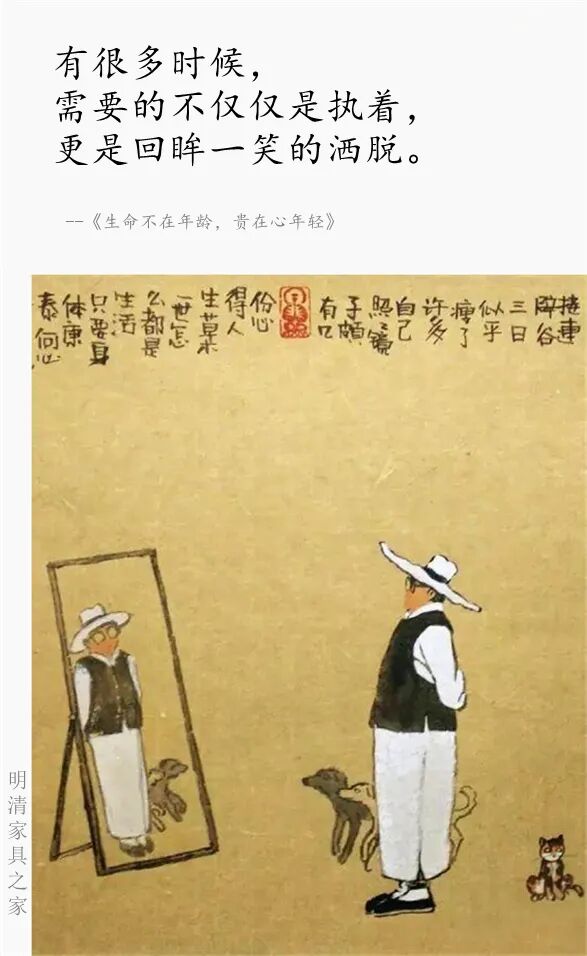 有很多时候，
需要的不仅仅是执着，
更是回眸一笑的洒脱。
--《生命不在年龄，贵在心年轻》
接連
辟谷
三日
似乎
瘦了
许多
自己
照镜
子頗
有
份心
得人
生草木
一世怎
么都是
生活
只要身
体康
泰何
明清家具之家